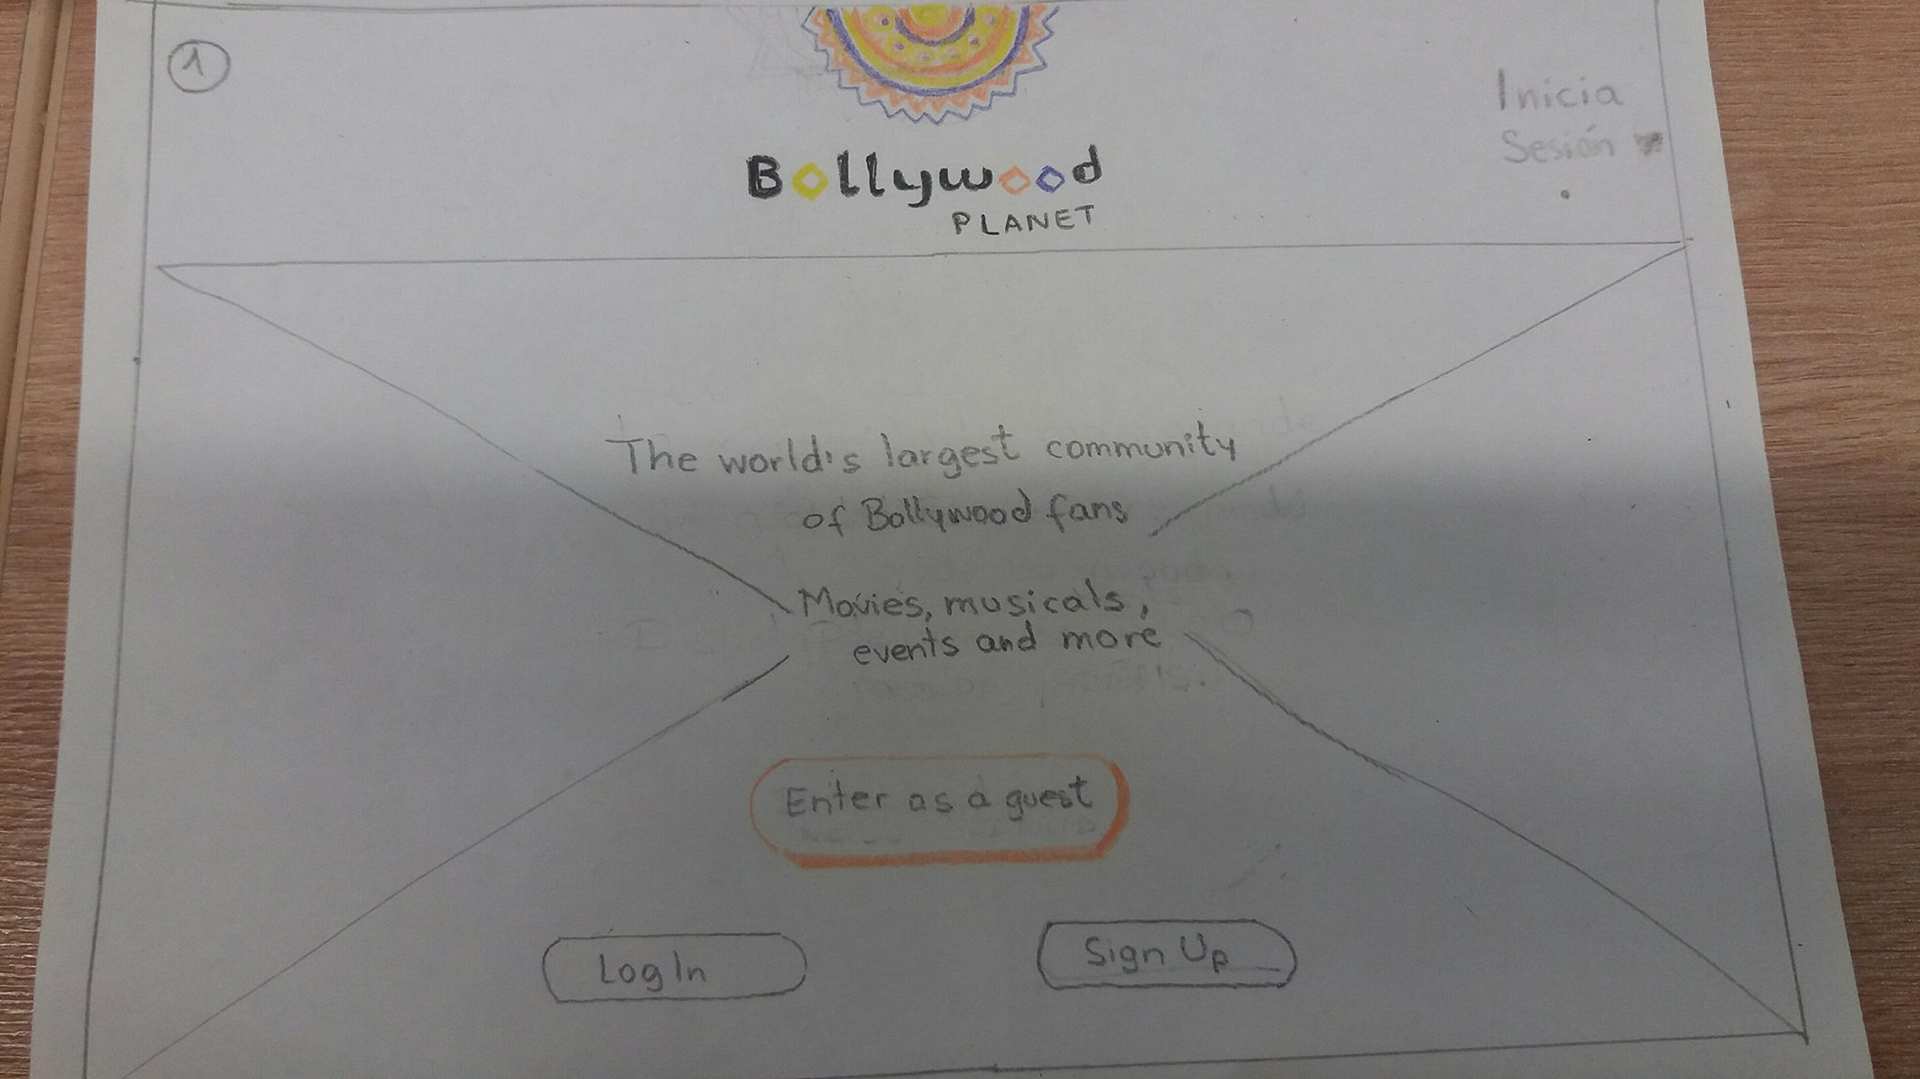 1
Bollywood
PLANET
Inicia
Sesión
The world's largest community
of Bollywood fans
Movies, musicals,
events and more
Enter as a guest
Log In
Sign Up